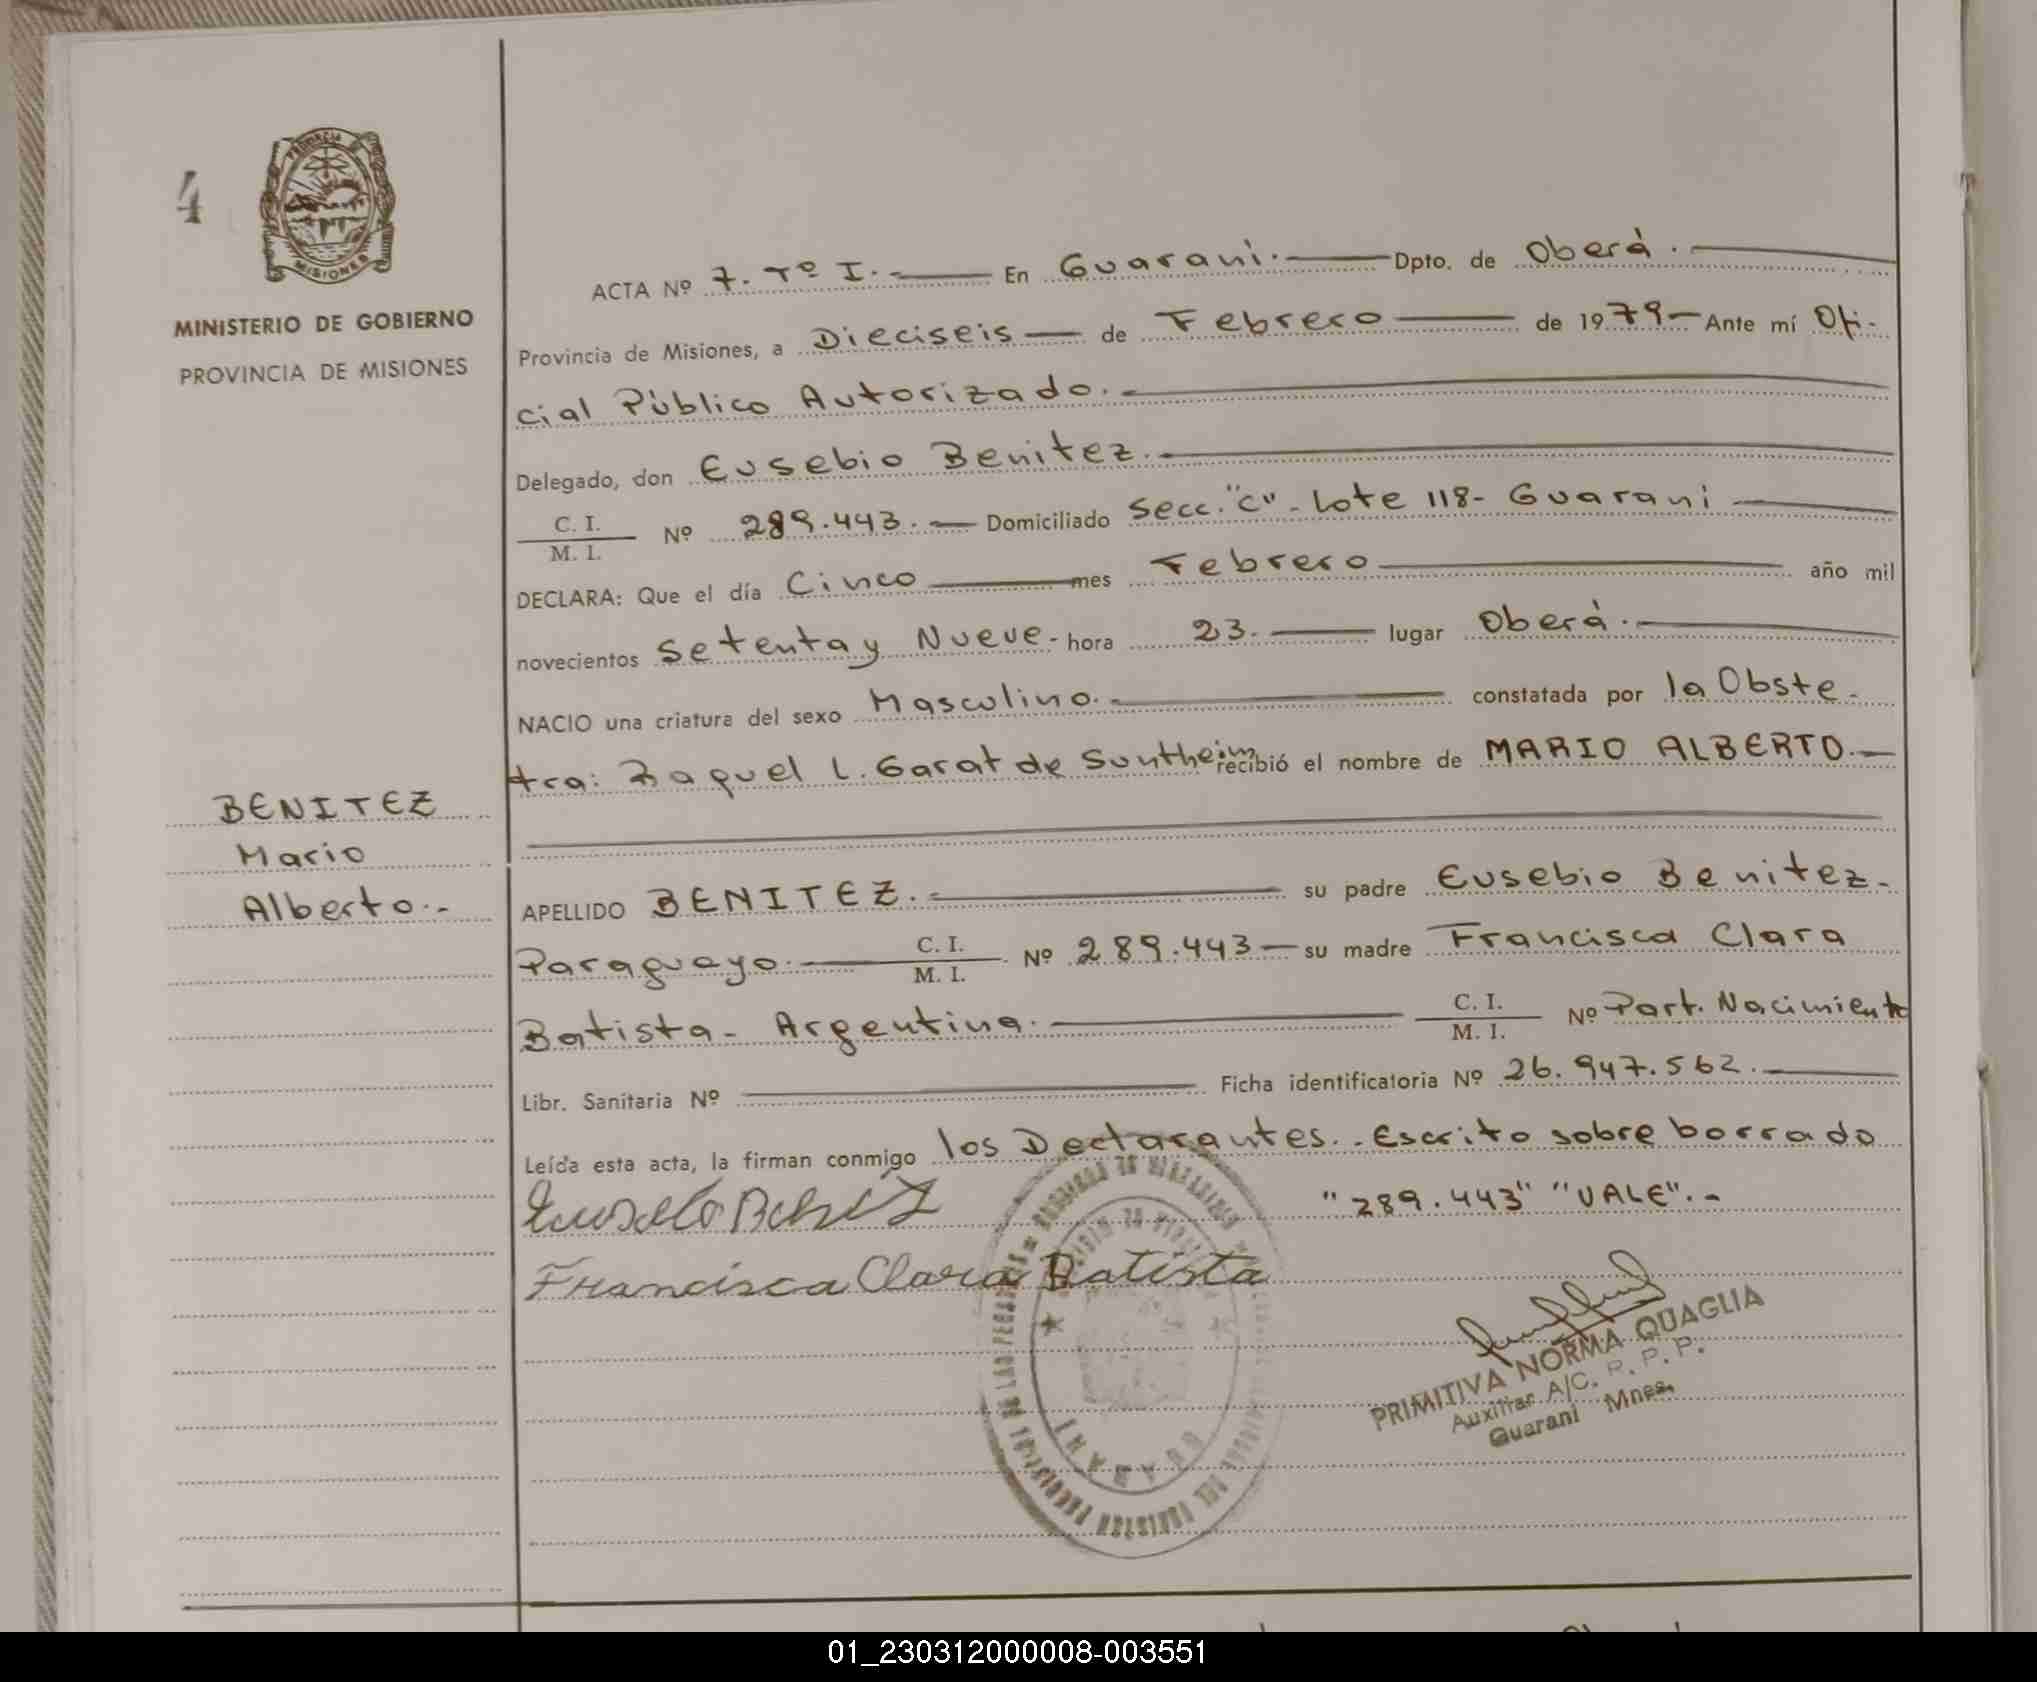 4
PROVINCIA DE
MISIONES
MINISTERIO DE GOBIERNO
PROVINCIA DE MISIONES
BENITEZ
Mario
Alberto.-
ACTA Nº 7. Tº I. En Guarani. Dpto. de Oberá.
Provincia de Misiones, a Dieciseis de Febrero de 1979 Ante mí Ofi-
cial Público Autorizado.
Delegado, don Eusebio Benitez.
C. I.
M. I.
Nº 289.443. Domiciliado Secc. "C" - Lote 118 - Guarani
DECLARA: Que el día Cinco mes Febrero año mil
novecientos Setenta y Nueve - hora 23. lugar Oberá.
NACIO una criatura del sexo Masculino. constatada por la Obste-
tra: Raquel L. Garat de Suntheim recibió el nombre de MARIO ALBERTO.
APELLIDO BENITEZ. su padre Eusebio Benitez-
Paraguayo. C. I.
M. I.
Nº 289.443 su madre Francisca Clara
Batista - Argentina. C. I.
M. I.
Nº Part. Nacimiento
Libr. Sanitaria Nº Ficha identificatoria Nº 26.947.562.
Leída esta acta, la firman conmigo los Declarantes.. Escrito sobre borrado
"289.443" "VALE".-
Eusebio Benitez
Francisca Clara Batista
GUARANI
PRIMITIVA NORMA QUAGLIA
Auxiliar A/C. R. P. P.
Guarani Mnes.
01_230312000008-003551